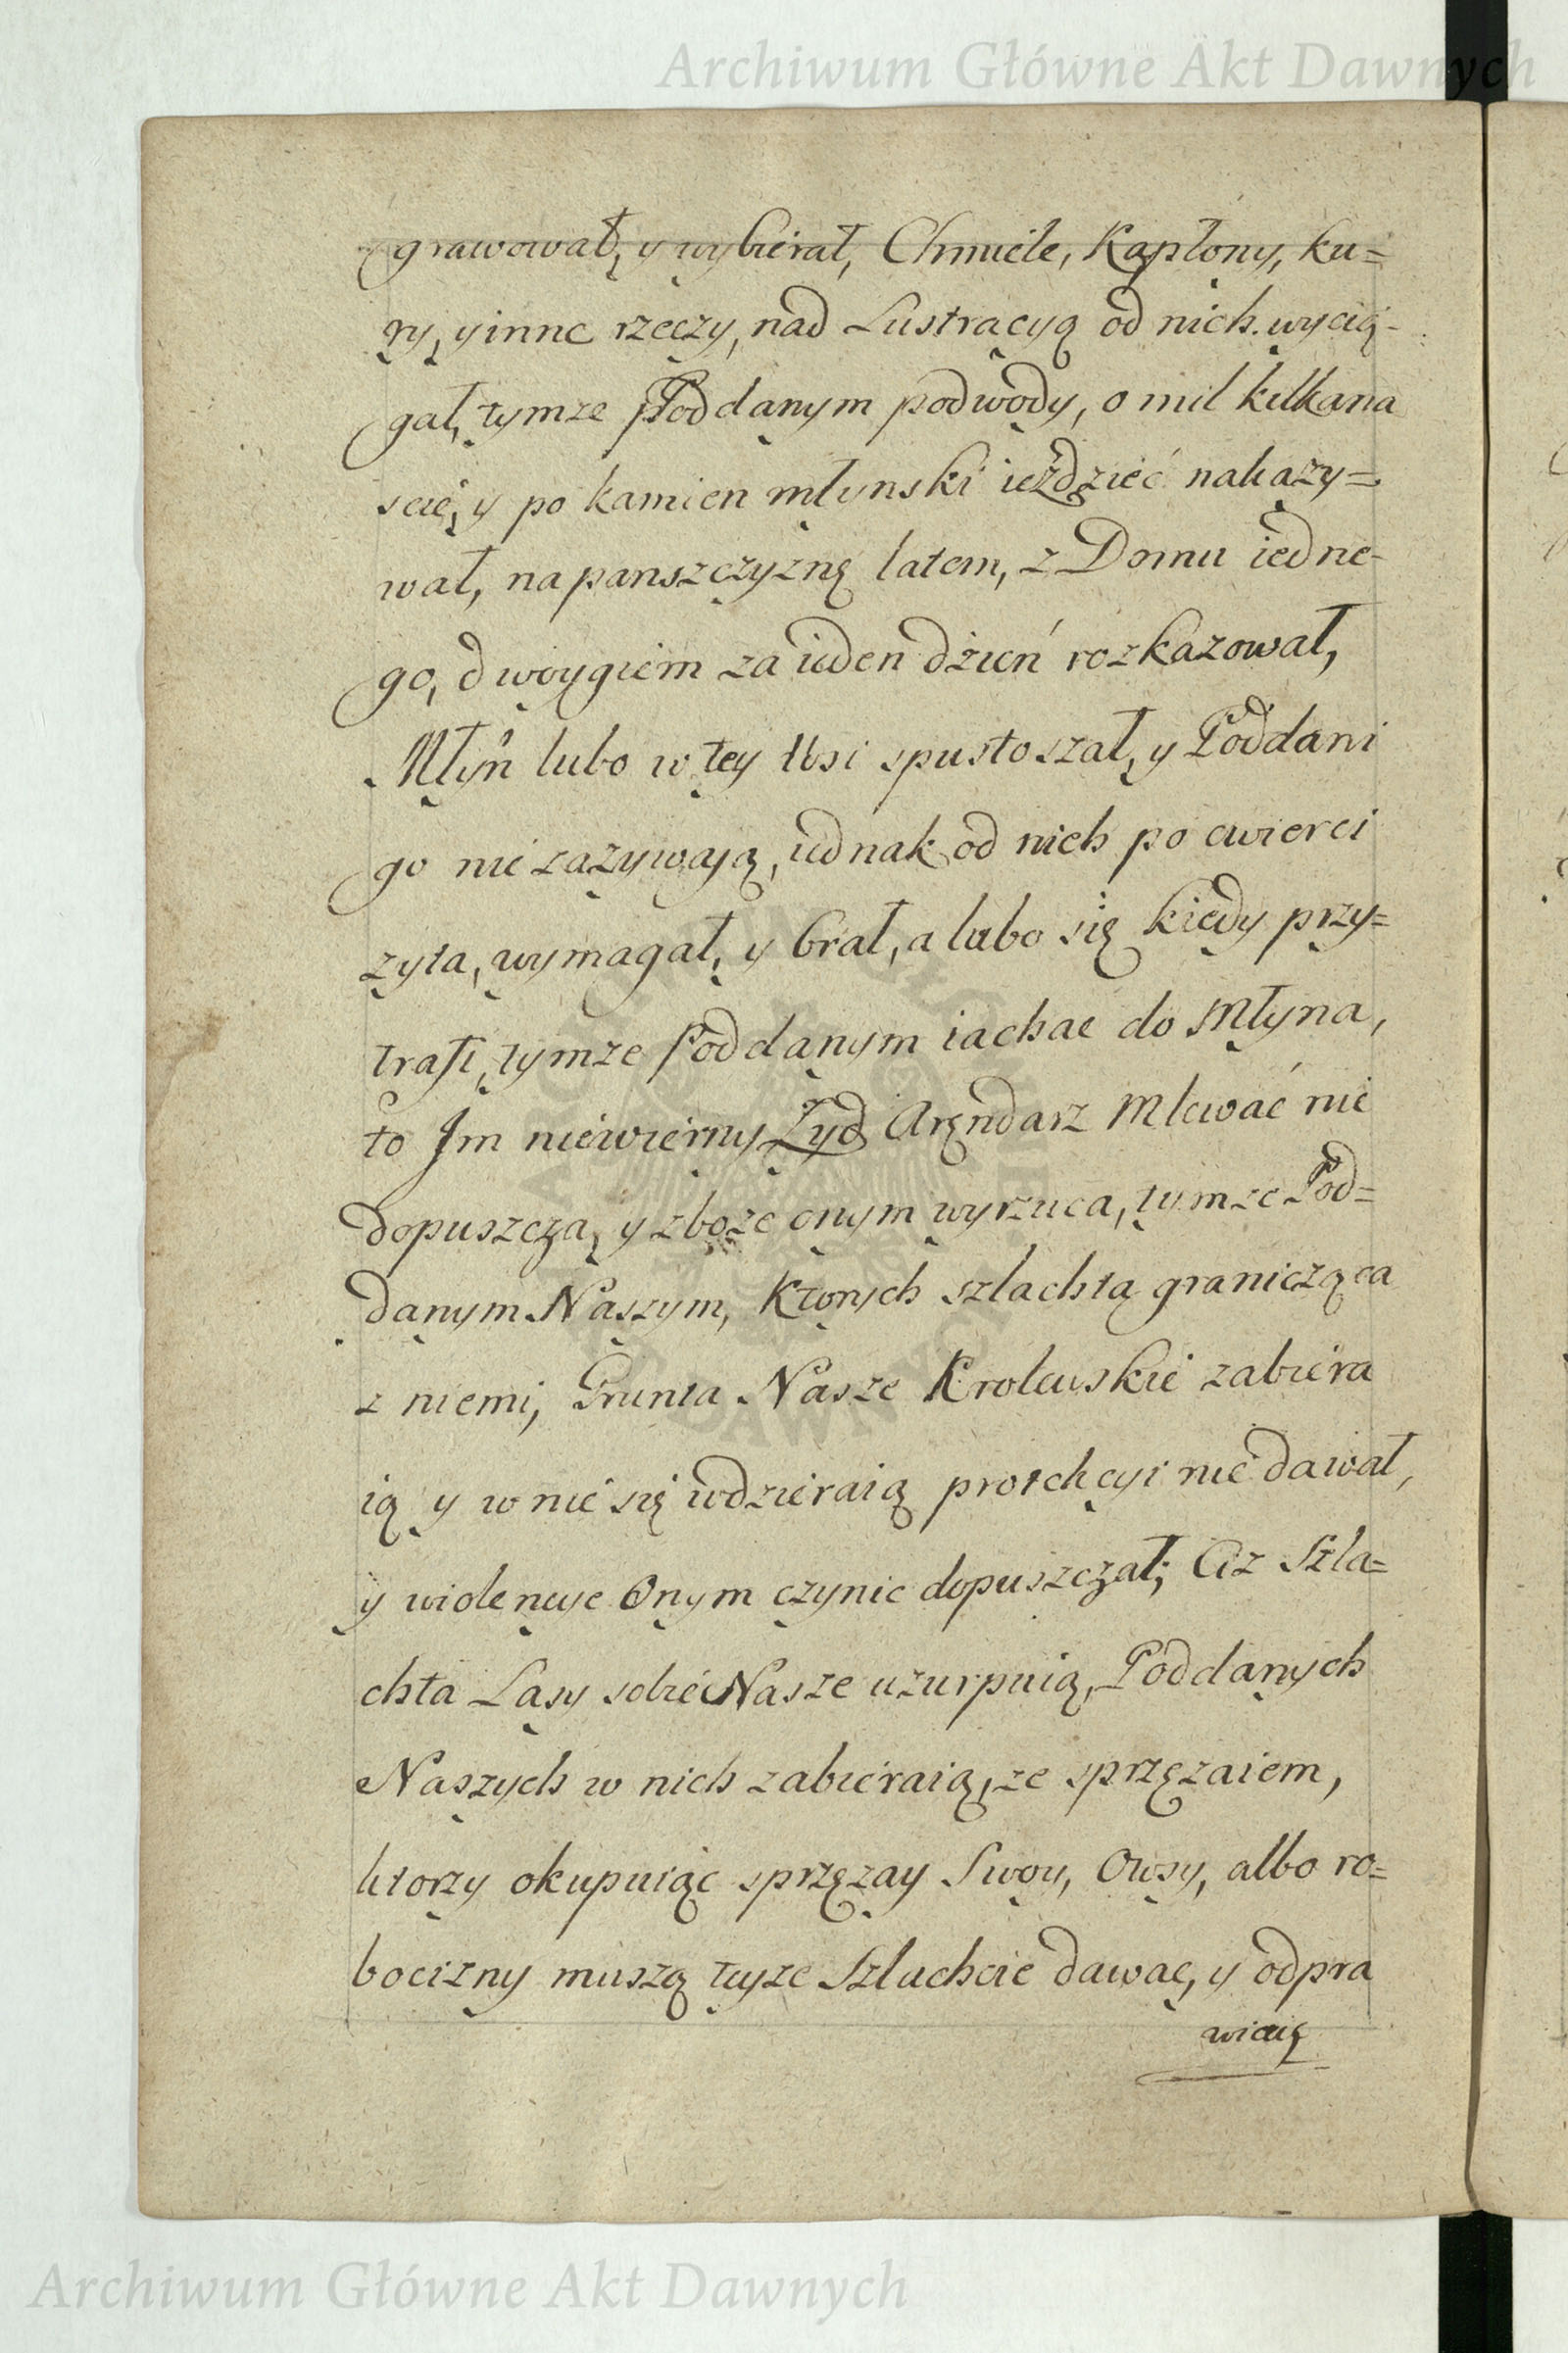 Archiwum Główne Akt Dawnych
grawował, y wybierał, Chmiele, Kapłony, ku=
ry, y inne rzeczy, nad Lustracyą od nich wycią-
gał, tymze Poddanym podwody, o mil kilkana
scie, y po kamien młynski ieździć nakazy=
wał, na panszczyznę latem, z Domu iedne-
go, dwoygiem za ieden dzień rozkazował,
Młyn lubo w tey Wsi spustoszał, y Poddani
go nie zazywają, iednak od nich po cwierci
zyta, wymagał, y brał, a lubo się kiedy przy=
trafi, tymze Poddanym iachac do Młyna,
to Jm niewierny Zyd Arędarz Mlewać nie
dopuszcza, y zboze onym wyrzuca, tymze Pod=
danym Naszym, Ktorych szlachta granicząca
z niemi, Grunta Nasze Krolewskie zabiera
ią y w nie się wdzieraią protekcyi nie dawał,
y wiolencye Onym czynic dopuszczał; Az Szla=
chta Lasy sobie Nasze uzurpuią, Poddanych
Naszych w nich zabieraią, ze sprzęzaiem,
ktorzy okupuiąc sprzęzay Swoy, Owsy, albo ro=
bocizny muszą teyze Szlachcie dawac, y odpra
wiaią
Archiwum Główne Akt Dawnych